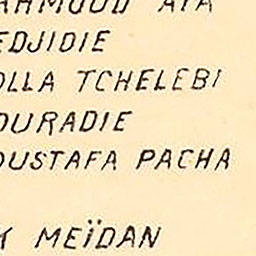 AHMOUD AYA
EDJIDIE
OLLA TCHELEBI
OURADIE
OUSTAFA PACHA
K MEÏDAN